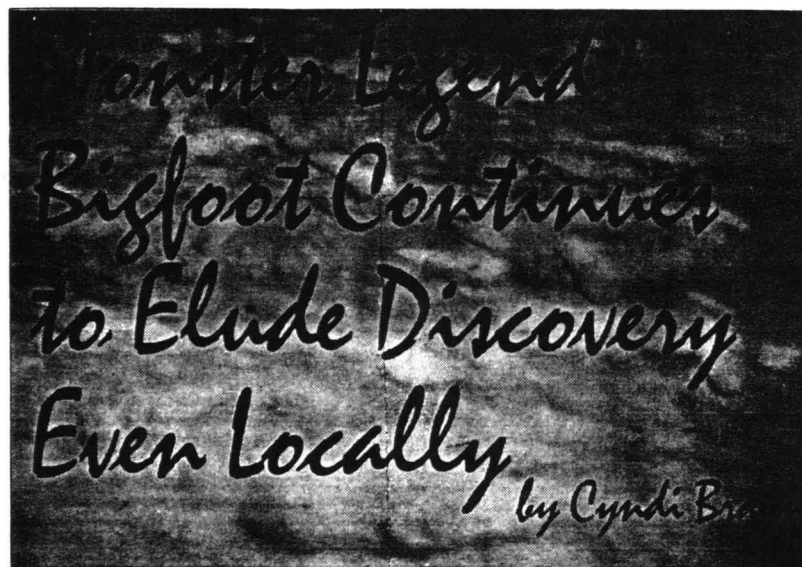 Monster Legend
Bigfoot Continues
to Elude Discovery
Even Locally
by Cyndi